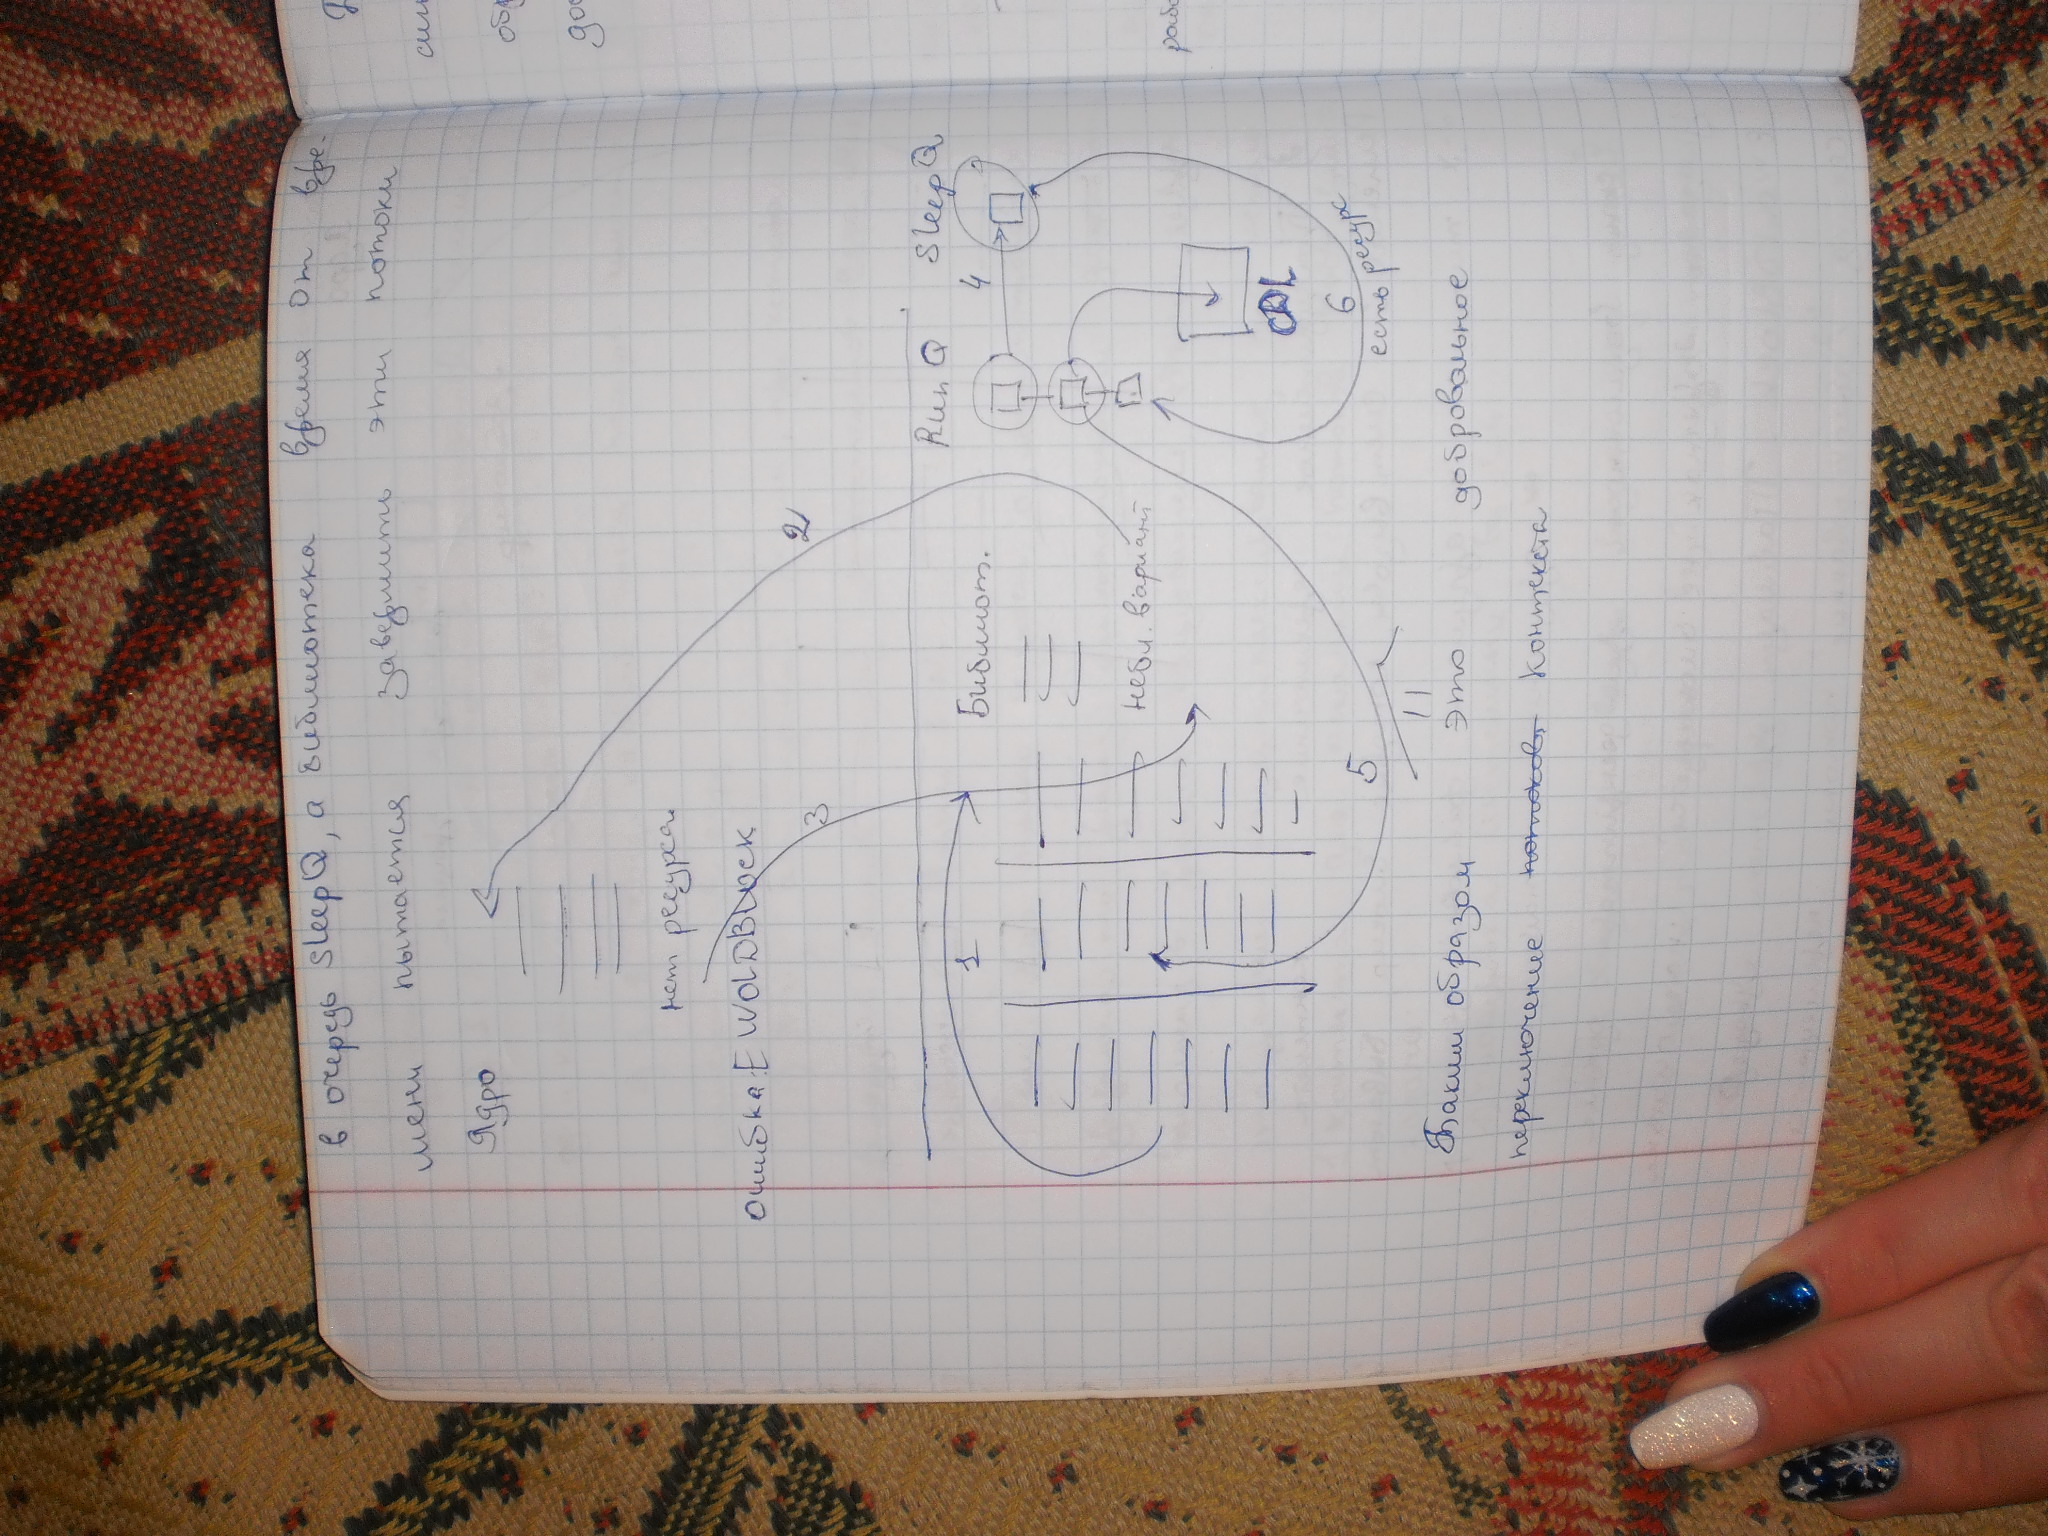 в очередь SleepQ, а библиотека время от вре-
мени пытается завершить эти потоки
Ядро
2
нет ресурса
ошибка: EWOLDBLOCK
3
RunQ SleepQ
1 Библиот. 4
небл. вариант
6
5 есть ресурс
Таким образом это добровольное
переключение потоков контекста